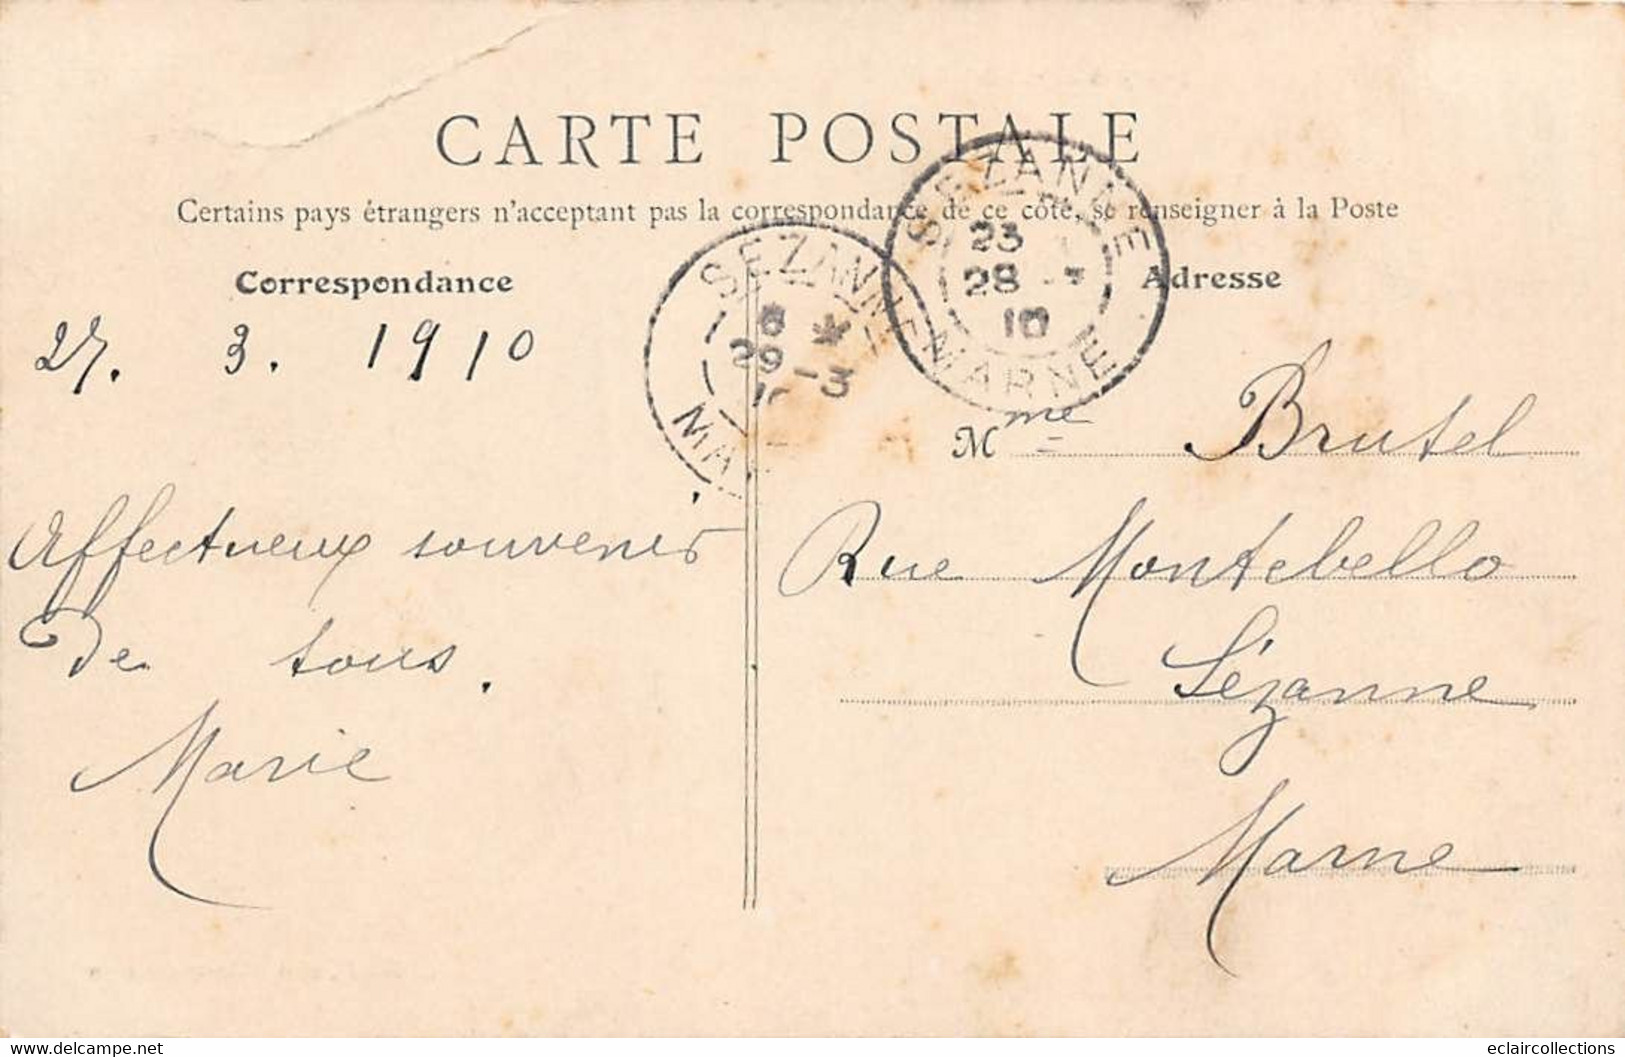 CARTE POSTALE
Certains pays étrangers n'acceptant pas la correspondance de ce côté, se renseigner à la Poste
Correspondance
Adresse
SEZANNE
23
28 -3
10
MARNE
SEZANNE
6 *
29 -3
10
MA
27. 3. 1910
Affectueux souvenir
De tous.
Marie
Mme Brutel
Rue Montebello
Sézanne
Marne
delcampe.net
eclaircollections